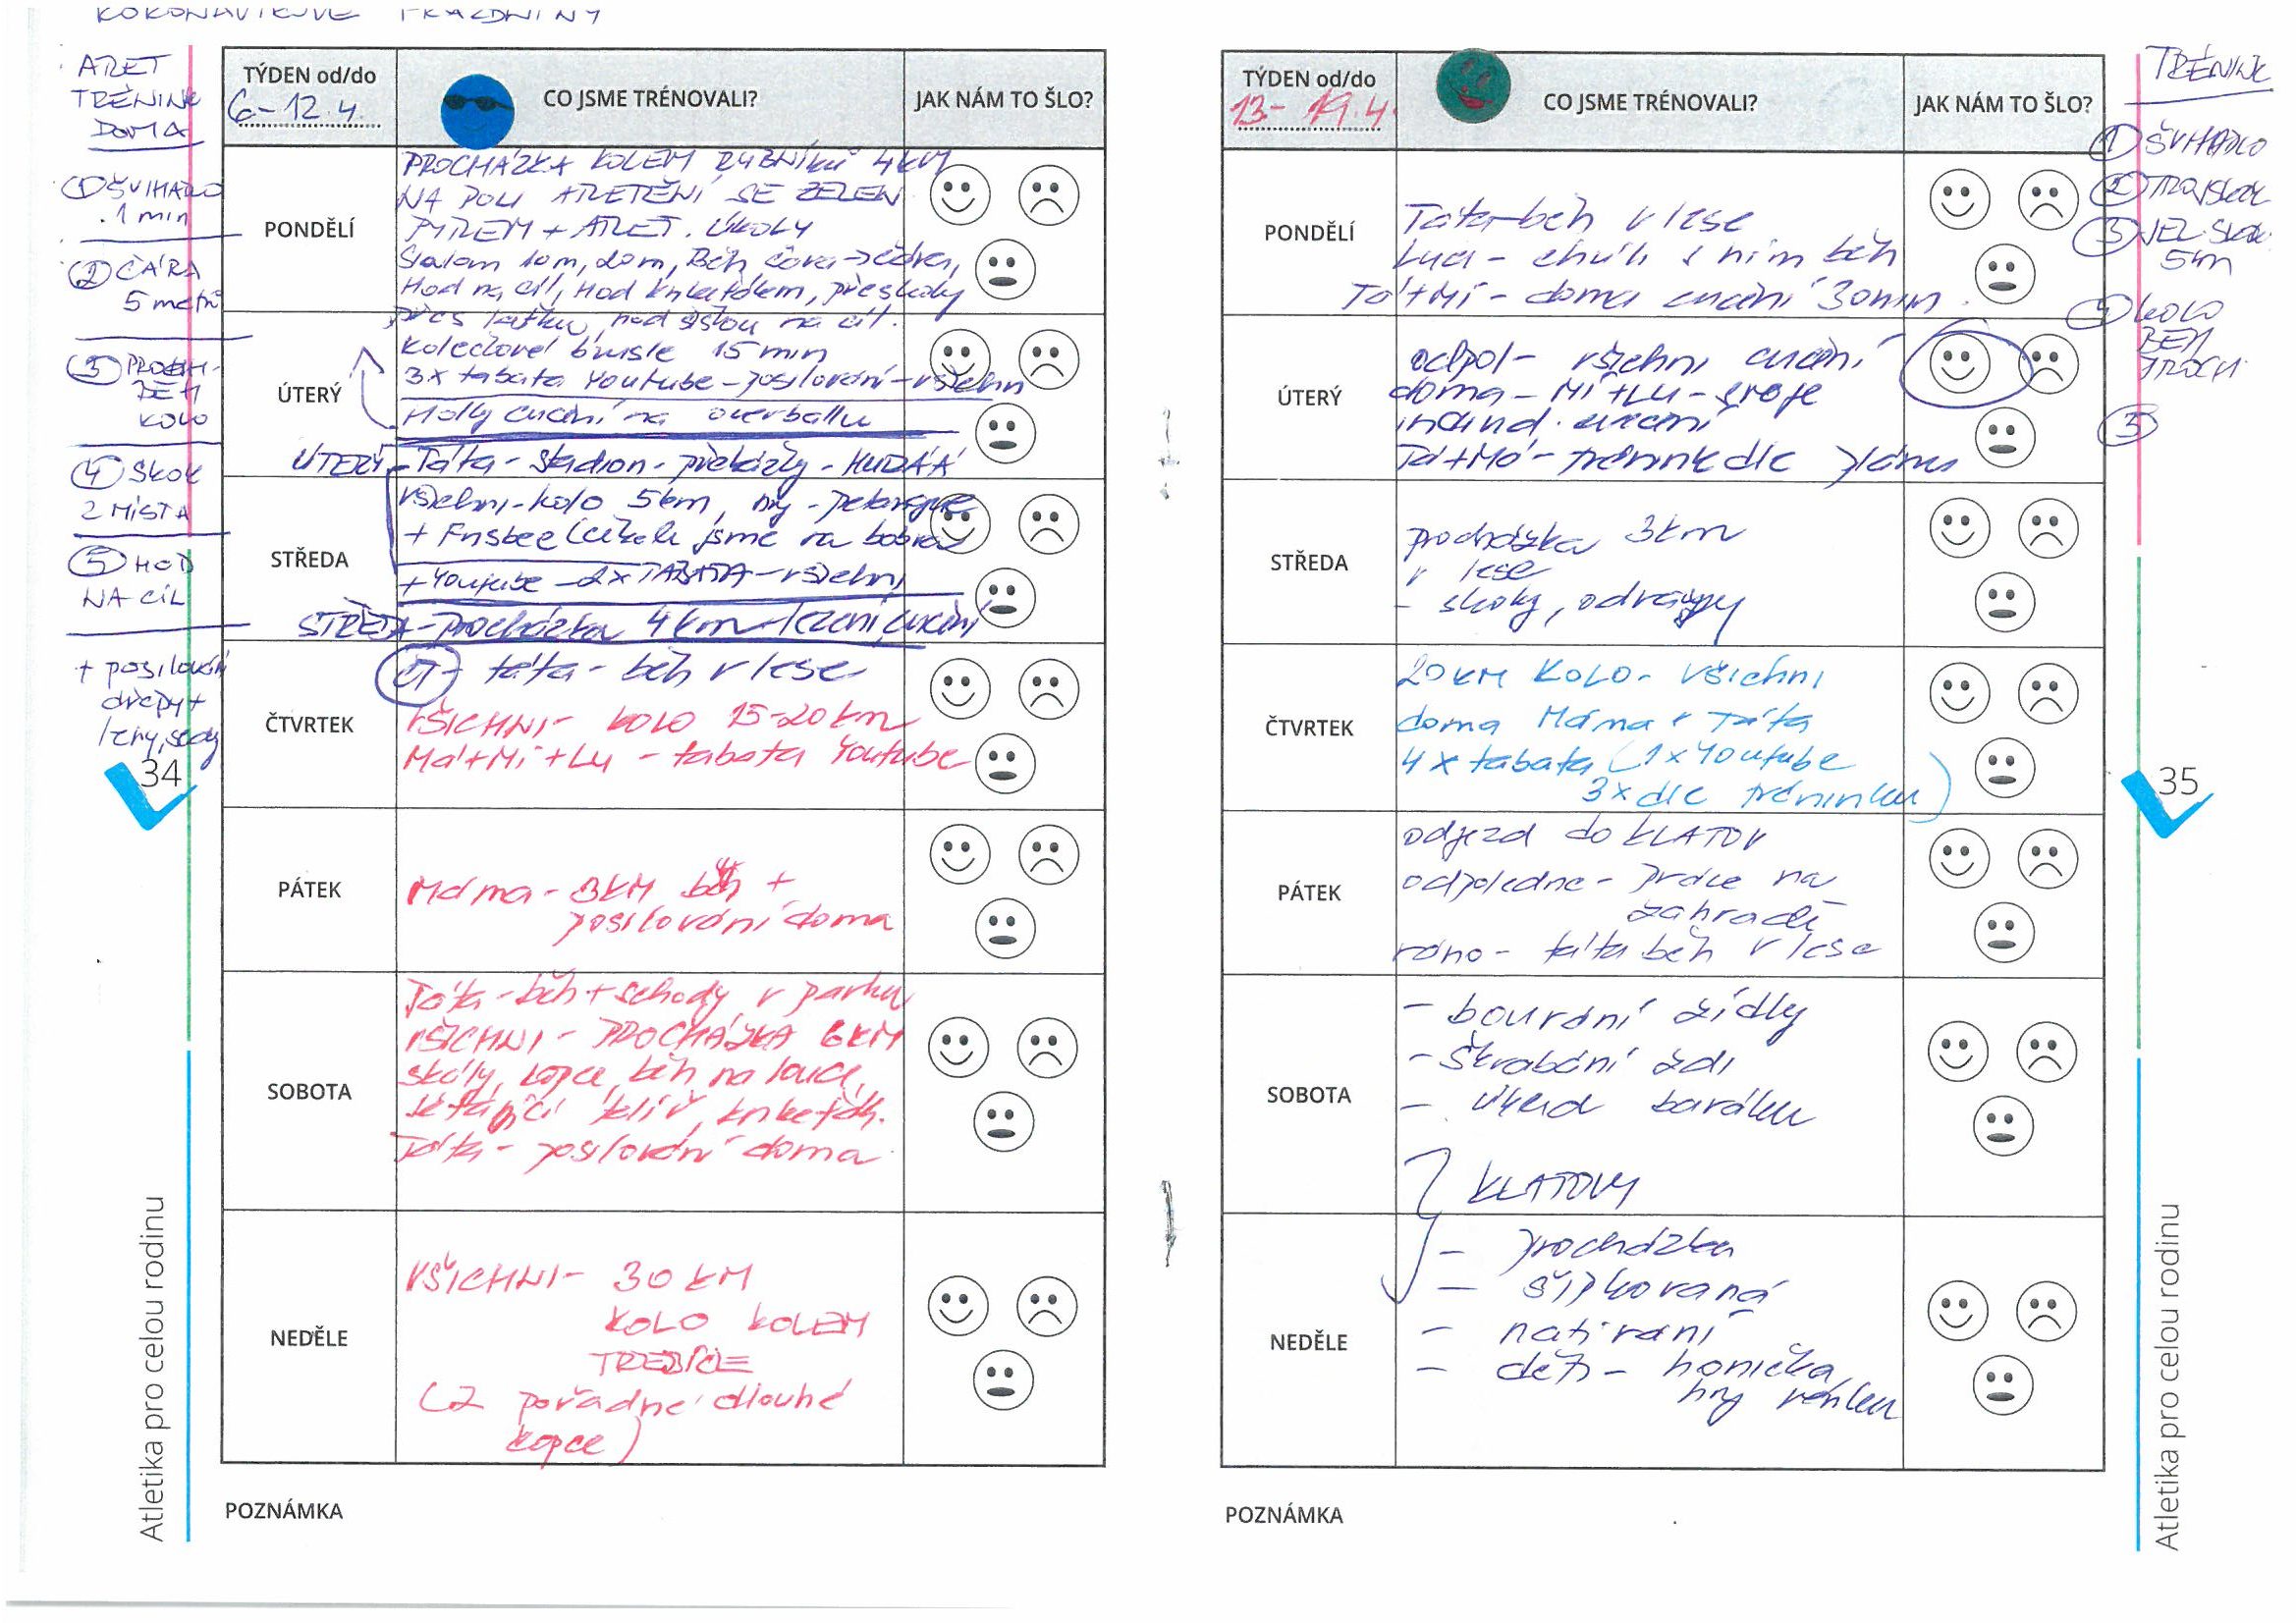 KORONAVIROVÉ PRÁZDNINY
ATLET
TRÉNINK
DOMA
① ŠVIHADLO
1 min
② ČÁRA
5 metrů
③ PROCH-
BĚH
KOLO
④ SKOK
Z MÍSTA
⑤ HOD
NA CÍL
+ posilování
dřepy +
34
Atletika pro celou rodinu
TÝDEN od/do
6-12.4.
CO JSME TRÉNOVALI?
JAK NÁM TO ŠLO?
PONDĚLÍ
PROCHÁZKA KOLEM RYBNÍKŮ 4KM
NA POLI SE ZELEN
PYREM + ATLET. ÚKOLY
Slalom 10m, 20m, Běh čára->čára,
Hod na cíl, Hod kriketákem, přeskoky
přes laťku, hod šiškou na cíl.
ÚTERÝ
Kolečkové brusle 15 min
3x tabata Youtube - posilování - všichni
Holky cvičení na overballu
ÚTERÝ - Táta - stadion - překážky -
STŘEDA
všichni - kolo 5km, hry - petangue
+ Frisbee (čekali jsme na bobra)
+ Youtube - 2x TABATA - všichni
STŘEDA - Procházka 4km - lezení, cvičení
ČTVRTEK
táta - běh v lese
VŠICHNI - KOLO 15-20 km
Má+Mi+Lu - tabata Youtube
PÁTEK
Máma - 3KM běh +
posilování doma
SOBOTA
Táta - běh + schody v parku
VŠICHNI - PROCHÁZKA 6KM
skály, kopce, běh na louce,
létající talíř, kriketák.
Táta - posilování doma
NEDĚLE
VŠICHNI - 30 KM
KOLO KOLEM
TŘEBÍČE
(2 pořádné dlouhé
kopce)
POZNÁMKA
TÝDEN od/do
13-19.4.
CO JSME TRÉNOVALI?
JAK NÁM TO ŠLO?
PONDĚLÍ
Táta - běh v lese
Luci - chvíli s ním běh
Tá+Mi - doma cvičení 30min
ÚTERÝ
odpol - všichni cvičení
doma - Mi+Lu - svoje
individ. cvičení
Tá+Má - trénink dle plánu
STŘEDA
procházka 3km
v lese
- skoky, odrazy
ČTVRTEK
20KM KOLO - všichni
doma Máma + Táta
4x tabata (1x Youtube
3x dle tréninku)
PÁTEK
odjezd do KLATOV
odpoledne - práce na
zahradě
ráno - táta běh v lese
SOBOTA
- bourání zídky
- škrabání zdi
- úklid baráku
KLATOVY
NEDĚLE
- procházka
- šipkovaná
- natírání
- děti - honička,
hry venku
POZNÁMKA
TRÉNINK
① ŠVIHADLO
② TROJSKOK
③
5m
④ KOLO
BĚH
PROCH
⑤
35
Atletika pro celou rodinu